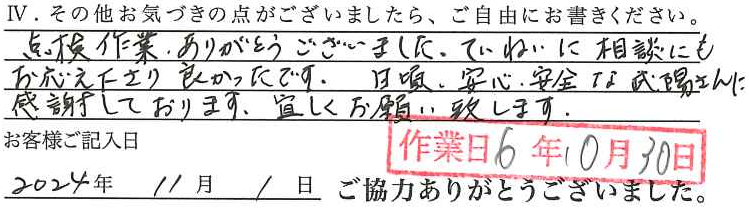 Ⅳ．その他お気づきの点がございましたら、ご自由にお書きください。
点検作業、ありがとうございました。ていねいに相談にも
お応え下さり良かったです。日頃、安心、安全な武陽さんに
感謝しております、宜しくお願い致します。
お客様ご記入日
作業日6年10月30日
2024年 11月 1日 ご協力ありがとうございました。